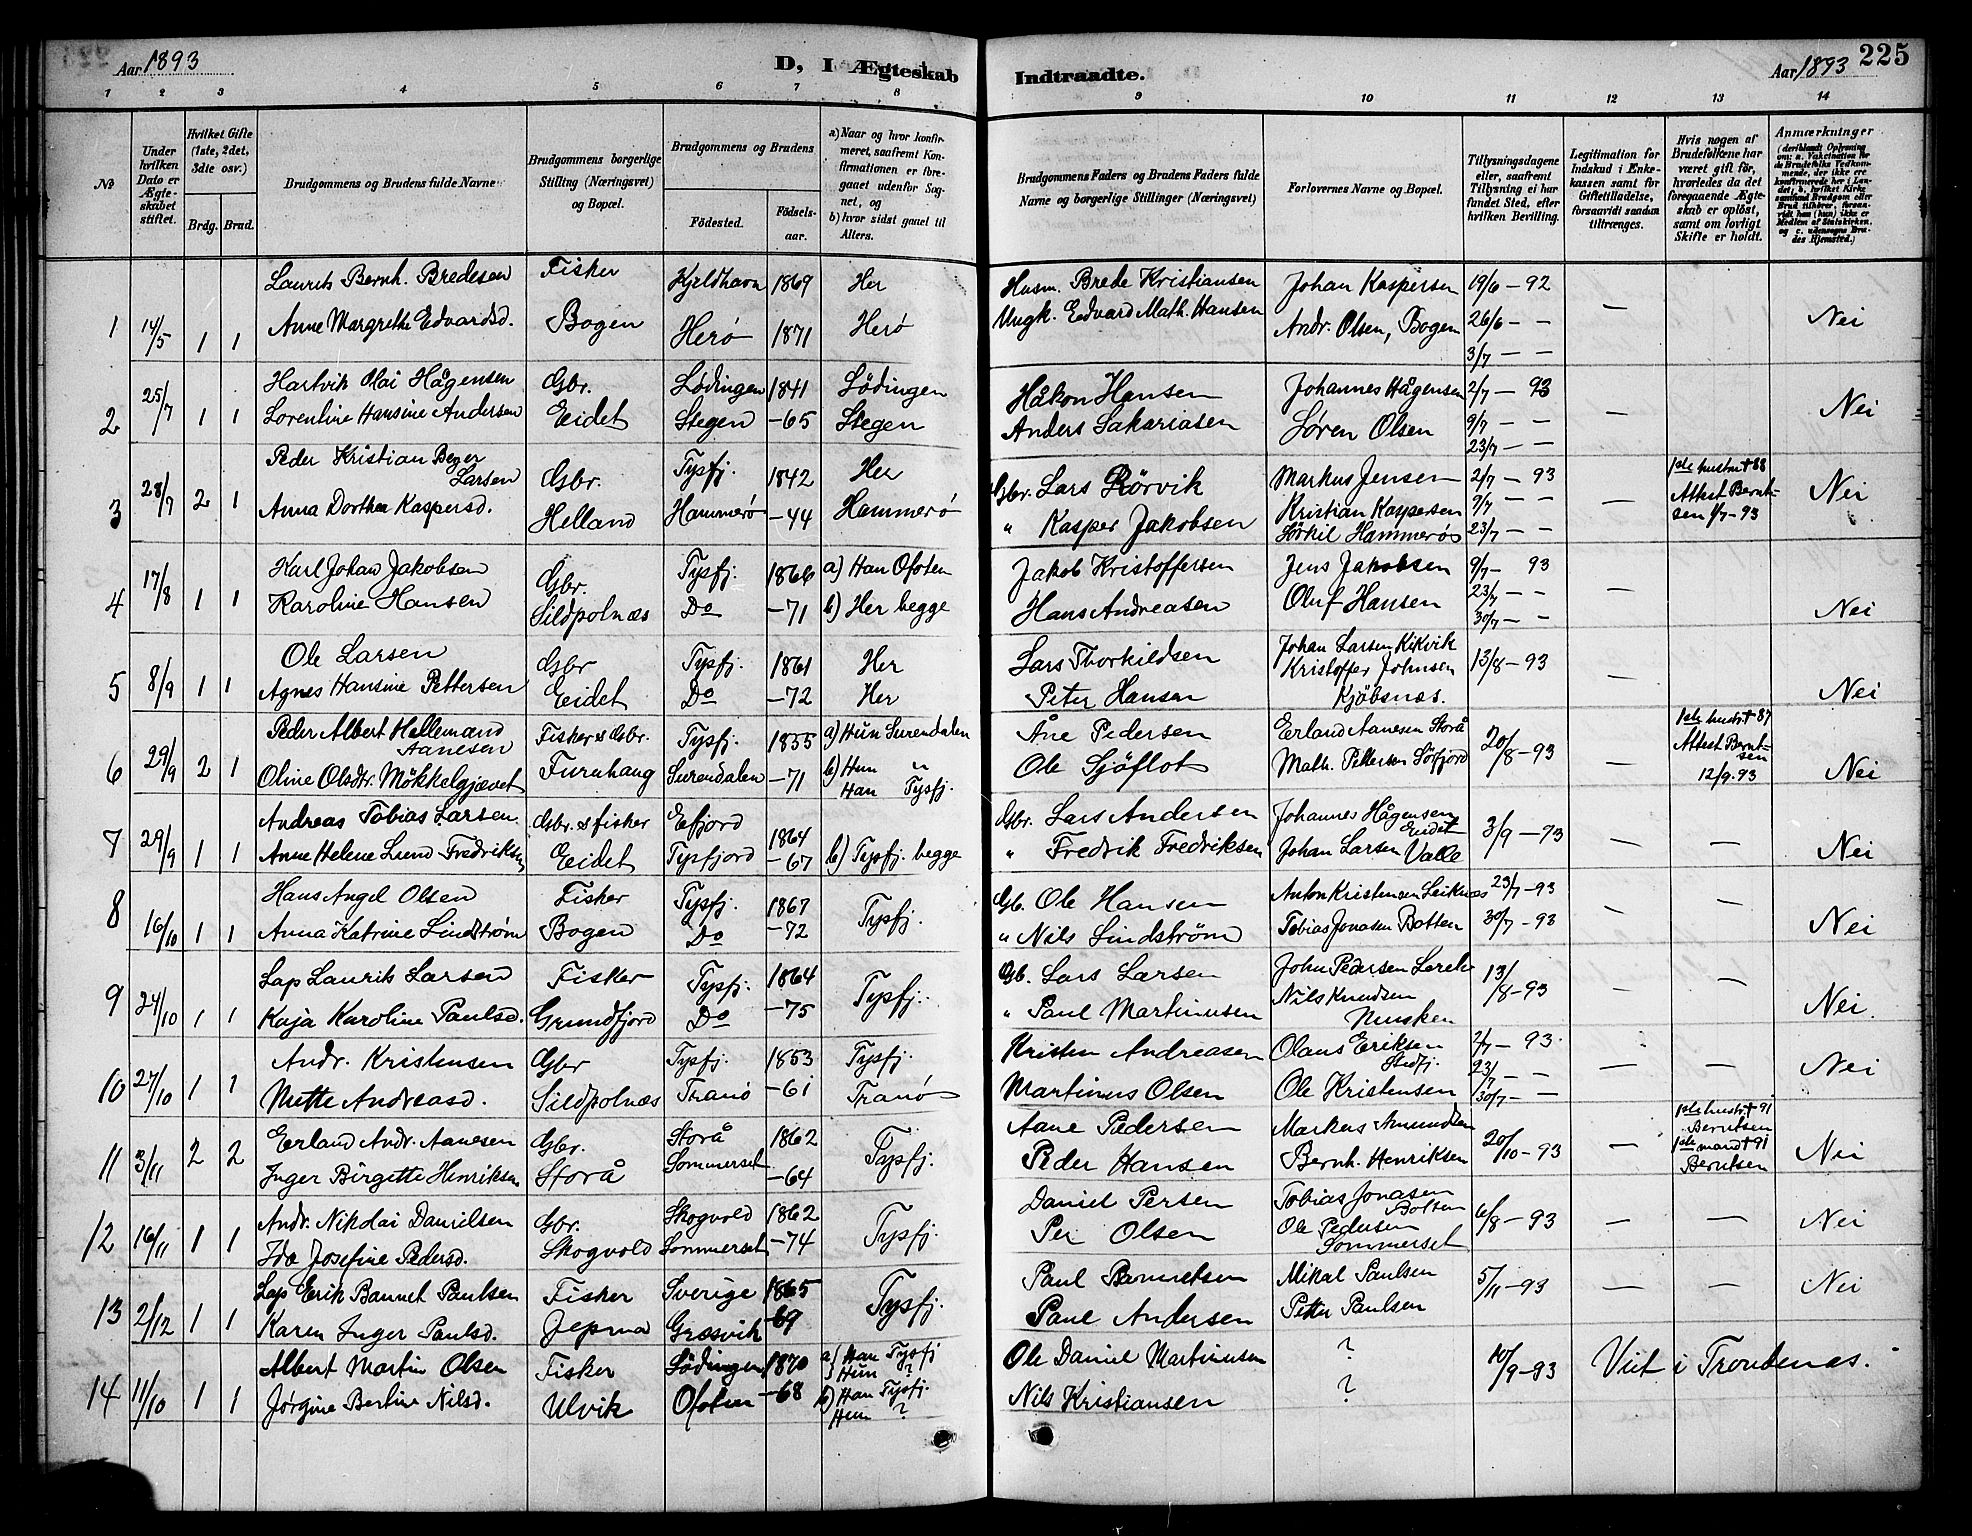 Aar 1893
D, I Ægteskab Indtraadte.
Aar 1893 225
1 2 3 4 5 6 7 8 9 10 11 12 13 14
No
Under hvilken Dato er Ægteskabet stiftet.
Hvilket Gifte (1ste, 2det, 3die osv.)
Brdg. Brud.
Brudgommens og Brudens fulde Navne.
Brudgommens borgerlige Stilling (Næringsvei) og Bopæl.
Brudgommens og Brudens
Fødested. Fødselsaar.
a) Naar og hvor konfirmeret, saafremt Konfirmationen er foregaaet udenfor Sognet, og
b) hvor sidst gaaet til Alters.
Brudgommens Faders og Brudens Faders fulde Navne og borgerlige Stillinger (Næringsvei)
Forlovernes Navne og Bopæl.
Tillysningsdagene eller, saafremt Tillysning ei har fundet Sted, efter hvilken Bevilling.
Legitimation for Indskud i Enkekassen samt for Giftetilladelse, forsaavidt saadan tiltrænges.
Hvis nogen af Brudefolkene har været gift før, hvorledes da det foregaaende Ægteskab er opløst, samt om lovligt Skifte er holdt.
Anmærkninger
(deriblandt Oplysning om: a. Vaksination for de Brudefolks Vedkommende, der ikke ere konfirmerede her i Landet, b. hvilket Kirkesamfund Brudgom eller Brud tilhører, forsaavidt han (hun) ikke er Medlem af Statskirken, og c. udensogns Brudes Hjemsted.)
Laurits Bernh. Bredesen Fisker Kjeldhavn 1869 Her Husm. Brede Kristiansen Johan Kaspersen 19/6 - 92
1 14/5 1 1 Anne Margrethe Edvardsd. Bogen Herø 1871 Herø Ungk. Edvard Math. Hansen Andr. Olsen, Bogen 26/6 - - — Nei
3/7 - -
Hartvik Olai Hågensen Gbr. Lødingen 1841 Lödingen Håkon Hansen Johannes Hågensen 2/7 - 93
2 25/7 1 1 Lorentine Hansine Andersen Eeidet Stegen -65 Stegen Anders Sakariasen Søren Olsen 9/7 - - — Nei
23/7 - -
Peder Kristian Beyer Larsen Gbr. Tysfj. 1842 Her Gbr. Lars Rörvik Markus Jensen 2/7 - 93 1ste hustru † 88
3 28/7 2 1 Anna Dorthea Kaspersd. Helland Hammerø -44 Hammerø " Kasper Jakobsen Kristian Kaspersen 9/7 - - — Attest Berntsen 1/7-93 Nei
Sörkil Hammerø 23/7 - -
Karl Johan Jakobsen Gbr. Tysfj. 1866 a) Han Ofoten Jakob Kristoffersen Jens Jakobsen 9/7 - 93
4 17/8 1 1 Karoline Hansen Sildpolnæs Do -71 b) Her begge Hans Andreasen Oluf Hansen 23/7 - - — Nei
30/7 - -
Ole Larsen Gbr Tysfj. 1861 Her Lars Thorkildsen Johan Larsen Kikvik
5 8/9 1 1 Agnes Hansine Pettersen Eeidet Do -72 Her Peter Hansen Kristoffer Johnsen Kjöbsnæs. 13/8 - 93 — Nei
Peder Albert Hellemand Aanesen Fisker & Gbr. Tysfj. 1855 a) Hun Surendalen Åne Pedersen Erland Aanesen Storå 1ste hustr † 87
6 29/9 2 1 Oline Olsdtr. Mökkelgjævet Furuhaug Surendalen -71 b) Hun " Han Tysfj. Ole Sjöflot Math. Pettersen Sörfjord 20/8 - 93 — Attest Berntsen 12/9.93 Nei
Andreas Tobias Larsen Gbr. & fisker Eefjord 1864 Gbr. Lars Andersen Johannes Hågensen Eeidet
7 29/9 1 1 Anne Helene Lund Fredriksen Eeidet Tysfjord -67 b) Tysfj. begge " Fredrik Fredriksen Johan Larsen Valle 3/9 - 93 — — Nei
Hans Angel Olsen Fisker Tysfj. 1867 Gb. Ole Hansen Anton Kristensen Leiknes 23/7 - 93
8 16/10 1 1 Anna Katrine Lindstrøm Bogen Do -72 Tysfj. " Nils Lindstrøm Tobias Jonasen Botten 30/7 - 93 — — Nei
Lap Laurits Larsen Fisker Tysfj. 1864 Gb. Lars Larsen John Pedersen
9 24/10 1 1 Kaja Karoline Paulsd. Grundfjord Do -75 Tysfj. " Paul Martinusen Nils Knudsen Musken 13/8 - 93 — — Nei
Andr. Kristensen Gbr Tysfj. 1853 Tysfj. Kristen Andreasen Olaus Eriksen 2/7 - 93
10 27/10 1 1 Mette Andreasd. Sildpolnæs Tranö -61 Tranö Martinus Olsen Ole Kristensen 23/7 - - — — Nei
30/7 - -
Erland Andr. Aanesen Gbr. Storå 1862 Aane Pedersen Markus Amundsen 1ste hustr. † 91 Berntsen
11 3/11 2 2 Inger Birgette Henriksen Storå Sommerset -64 Tysfj. Peder Hansen Bernh. Henriksen 20/10 - 93 — 1ste mand † 91 Berntsen Nei
Andr. Nikolai Danielsen Gbr. Skogvold 1862 Daniel Persen Tobias Jonasen Botten
12 16/11 1 1 Ida Josefine Pedersd. Skogvold Sommerset -74 Tysfj. Per Olsen Ole Pedersen Sommerset 6/8 - 93 — — Nei
Lap Erik Bannet Paulsen Fisker Sverige 1865 Paul Bannetsen Mikal Paulsen
13 2/12 1 1 Karen Inger Paulsd. Jepma Græsvik -69 Tysfj. Paul Andersen Petter Paulsen 5/11 - 93 — — Nei
Albert Martin Olsen Fisker Lödingen 1870 a) Han Tysfj Hun ? Ole Daniel Martinusen ?
14 11/10 1 1 Jørgine Bertine Nilsd. Ulvik Ofoten -68 b) Han Tysfj. Hun ? Nils Kristiansen ? 10/9 - 93 Viet i Trondenæs.